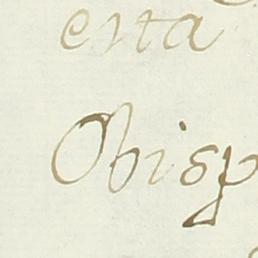 esta
Obisp